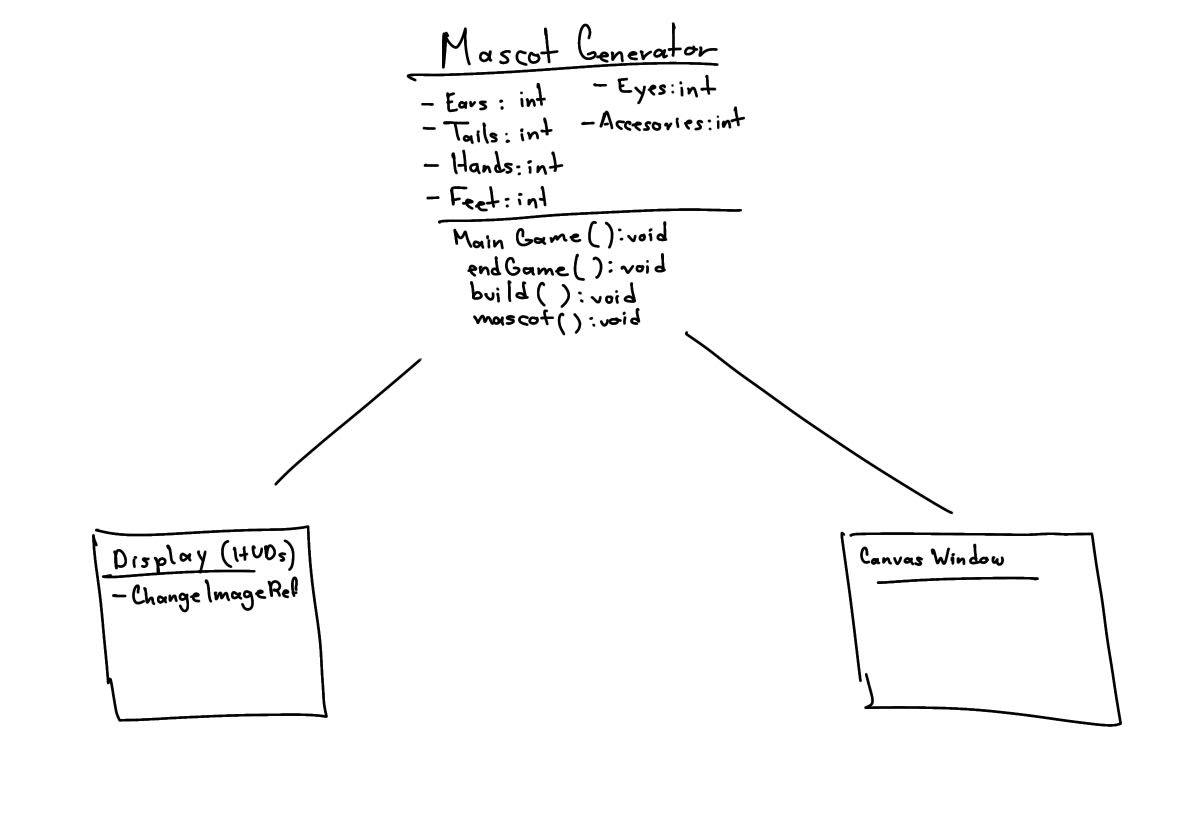 Mascot Generator
- Ears : int
- Eyes:int
- Tails: int
-Accesories:int
- Hands:int
- Feet:int
Main Game():void
endGame():void
build():void
mascot():void
Display (HUDs)
-ChangeImageRef
Canvas Window